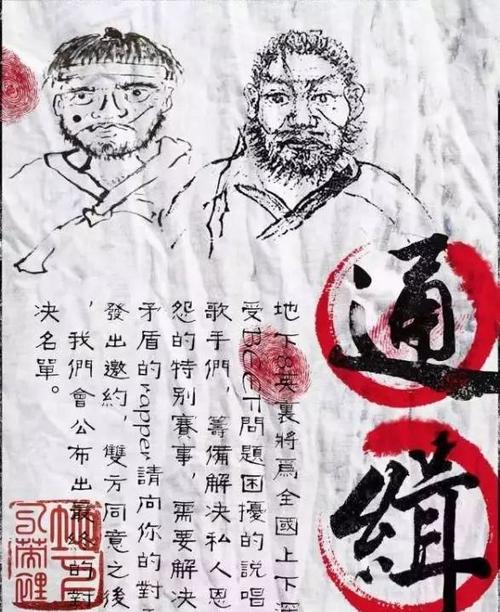 通緝
地下8英裏將爲全國上下
受BEEF問題困擾的說唱
歌手們，籌備解决私人恩
怨的特别賽事，需要解决
矛盾的rapper請向你的對手
發出邀約，雙方同意之後
，我們會公布出最終的對
决名單。